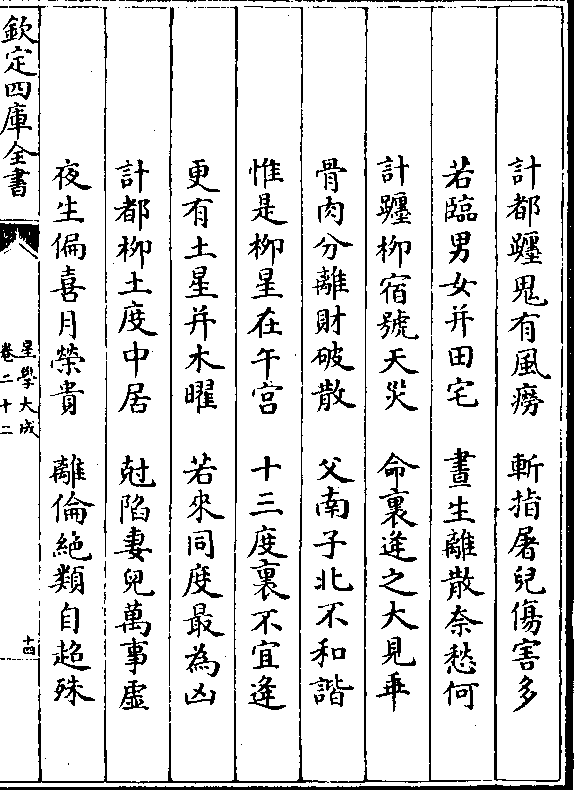 計都躔鬼有風癆　斬指屠兒傷害多
若臨男女并田宅　晝生離散奈愁何
計躔柳宿號天災　命裏逢之大見乖
骨肉分離財破散　父南子北不和諧
惟是柳星在午宫　十三度裏不宜逢
更有土星并木曜　若來同度最為凶
計都柳土度中居　尅陷妻兒萬事虛
夜生偏喜月榮貴　離倫絶類自超殊
欽定四庫全書
星學大成
卷二十二
十四